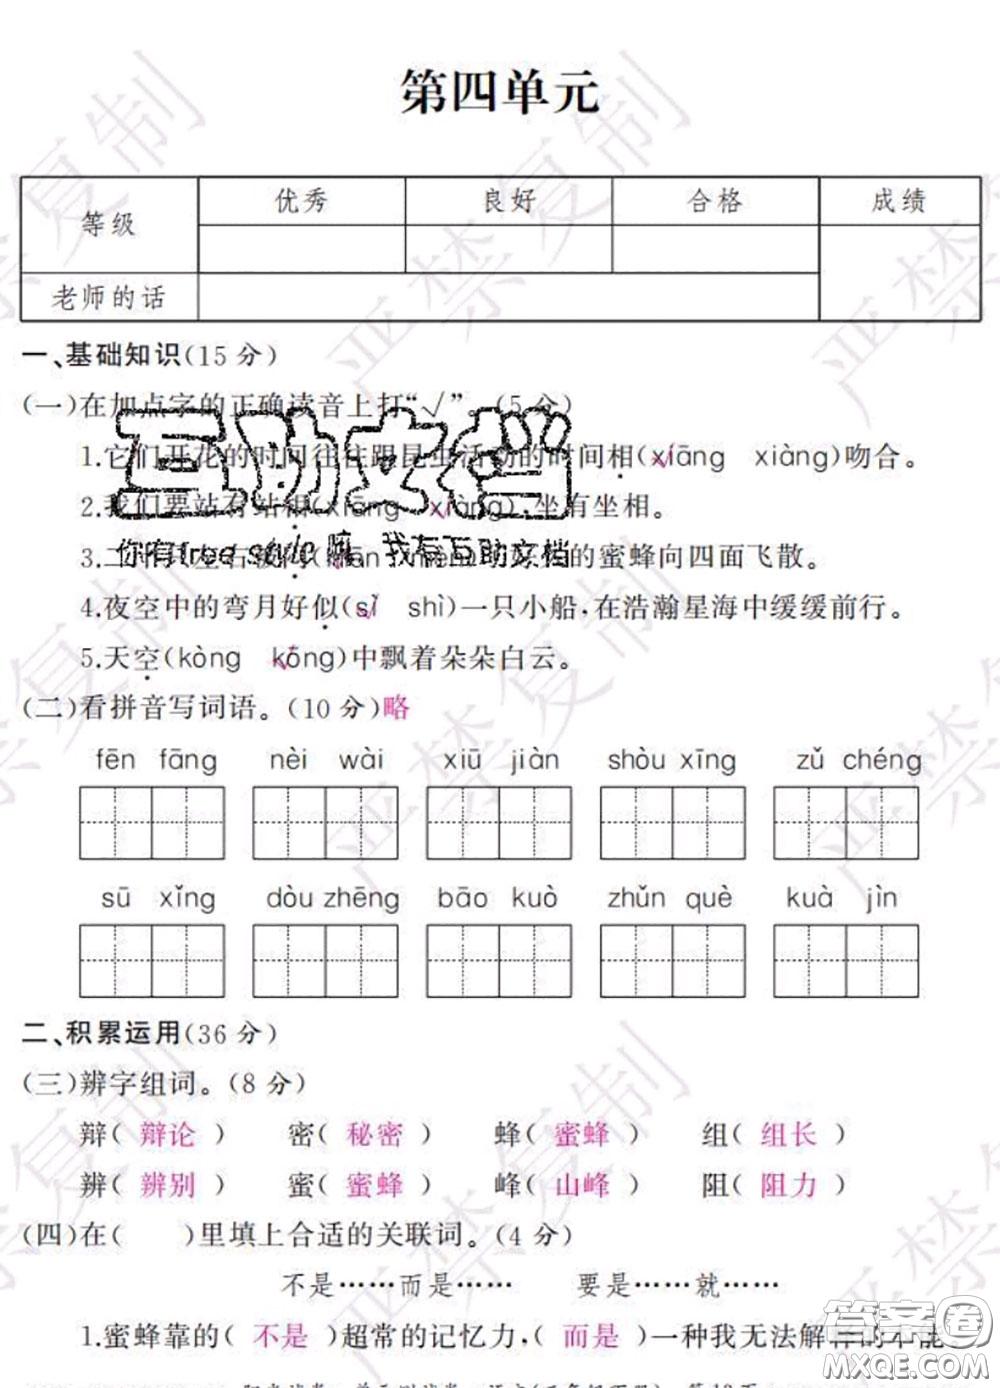 第四单元
等级 优秀 良好 合格 成绩
老师的话
一、基础知识(15分)
(一)在加点字的正确读音上打“√”。(5分)
1.它们开花的时间往往跟昆虫活动的时间相(xiāng xiàng)吻合。
2.我们要站有站相(xiāng xiàng),坐有坐相。
互助文档
你有free style嘛 我有互助文档
的蜜蜂向四面飞散。
4.夜空中的弯月好似(sì shì)一只小船,在浩瀚星海中缓缓前行。
5.天空(kòng kōng)中飘着朵朵白云。
(二)看拼音写词语。(10分)略
fēn fāng nèi wài xiū jiàn shòu xīng zǔ chéng
sū xǐng dòu zhēng bāo kuò zhǔn què kuà jìn
二、积累运用(36分)
(三)辨字组词。(8分)
辩( 辩论 ) 密( 秘密 ) 蜂( 蜜蜂 ) 组( 组长 )
辨( 辨别 ) 蜜( 蜜蜂 ) 峰( 山峰 ) 阻( 阻力 )
(四)在( )里填上合适的关联词。(4分)
不是……而是…… 要是……就……
1.蜜蜂靠的( 不是 )超常的记忆力,( 而是 )一种我无法解
答案圈
MXQE.COM
严禁复制